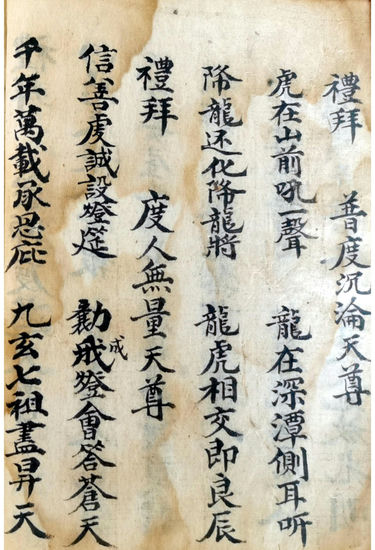 禮拜 普度沉淪天尊
虎在山前吼一聲 龍在深潭側耳听
降龍还化降龍將 龍虎相交即良辰
禮拜 度人無量天尊
信善虔誠設燈筵 勸成燈會答蒼天
千年萬載承恩庇 九玄七祖盡昇天